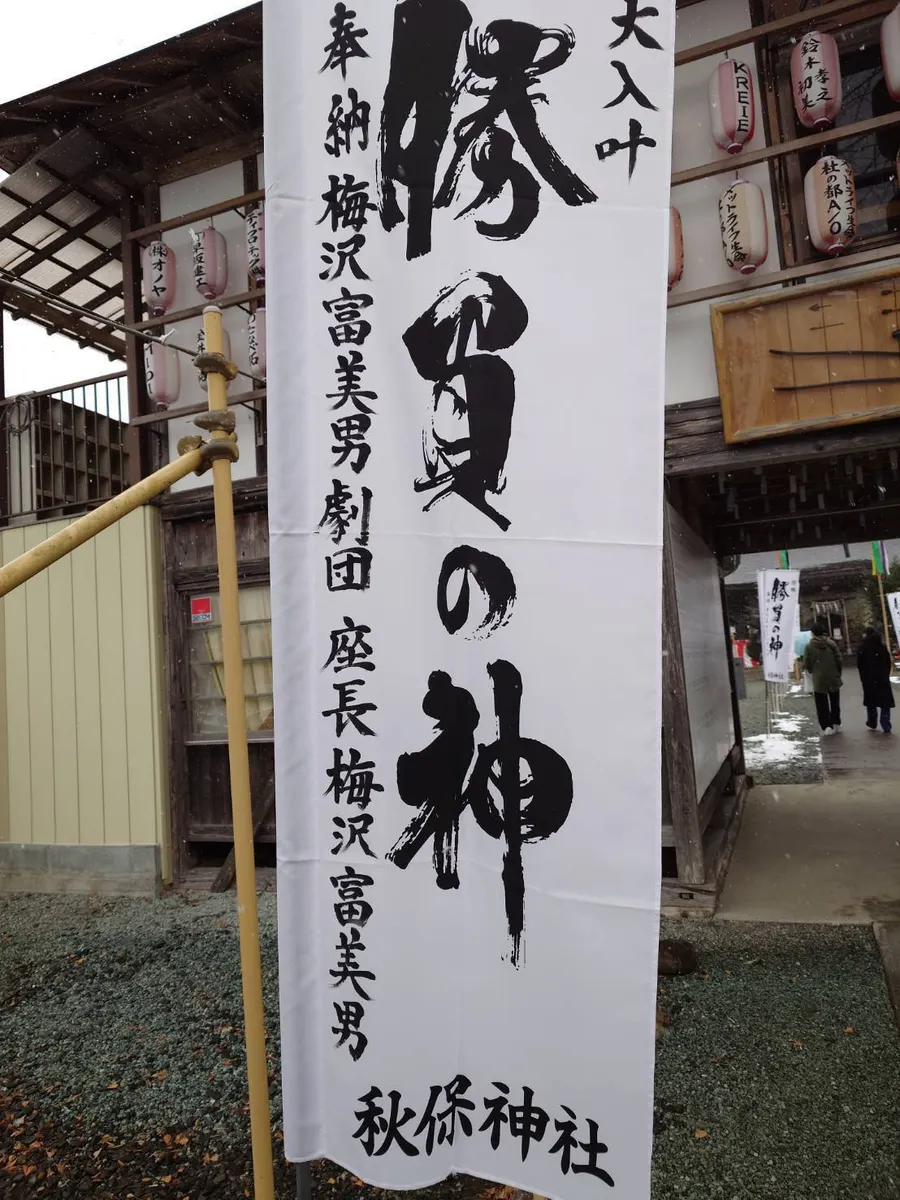 大入叶
勝負の神
奉納 梅沢富美男劇団 座長 梅沢富美男
秋保神社
KREIE
鈴木孝之
初美
杜の都A/O
㈱オノヤ
早坂建工
勝負の神